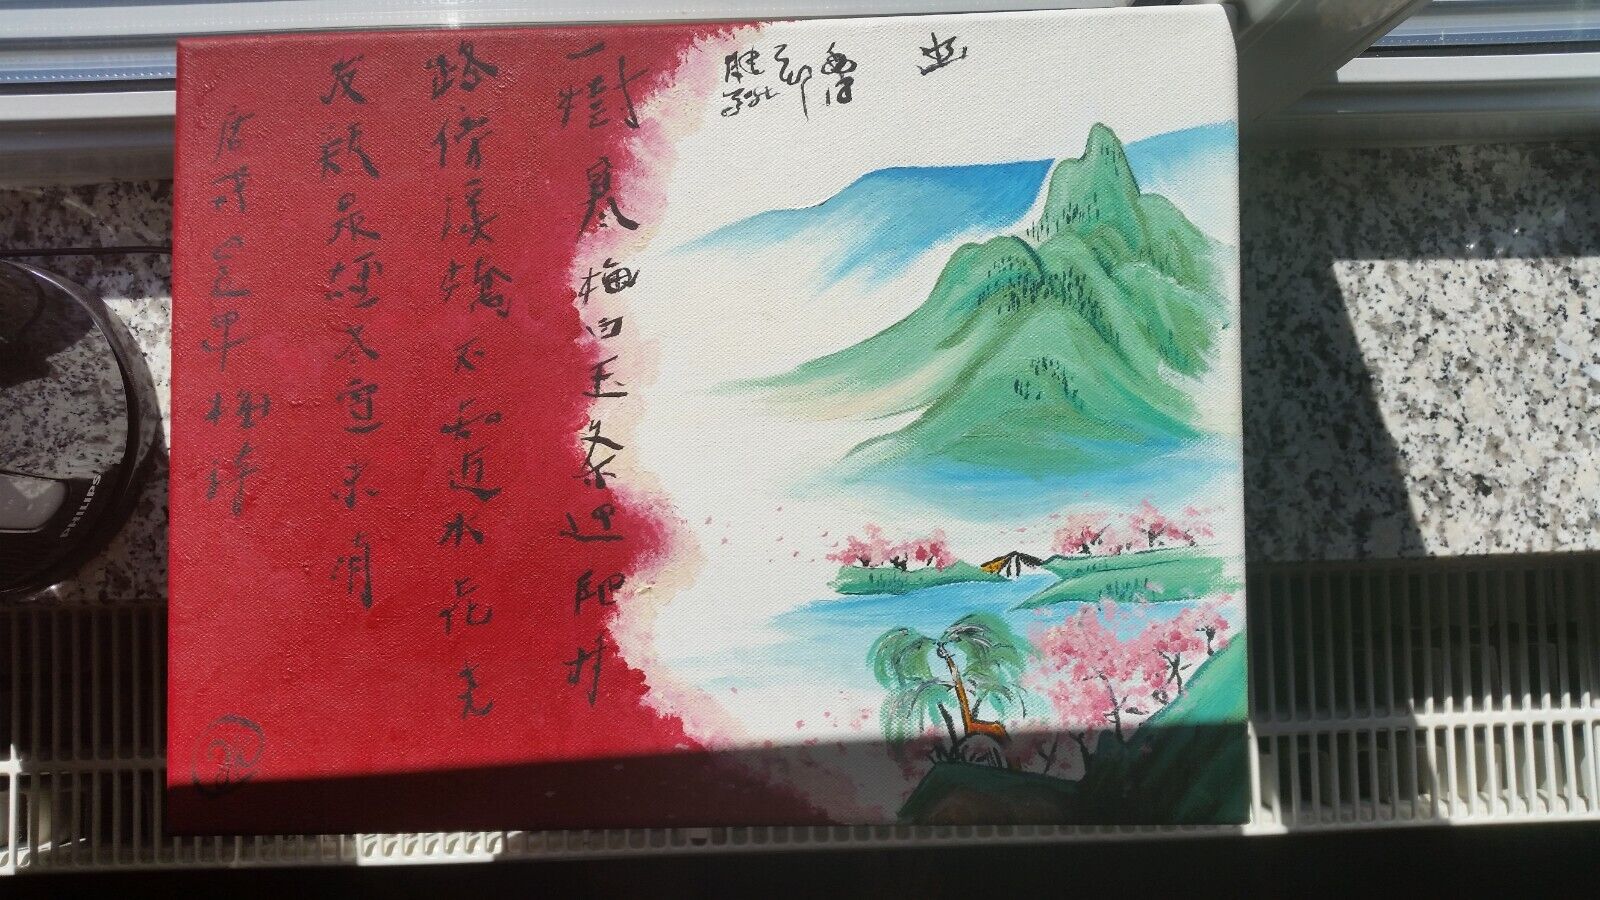 一樹寒梅白玉条迎村
路傍溪橋不知近水花先
发疑是經冬雪未消
唐戎昱早梅詩
PHILIPS